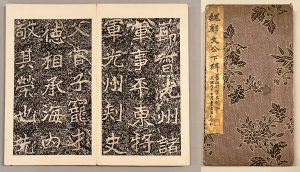 卿督光州諸
軍事平東將
軍光州刺史
父官子寵才
德相承海内
敬其榮也先
魏鄭文公下碑